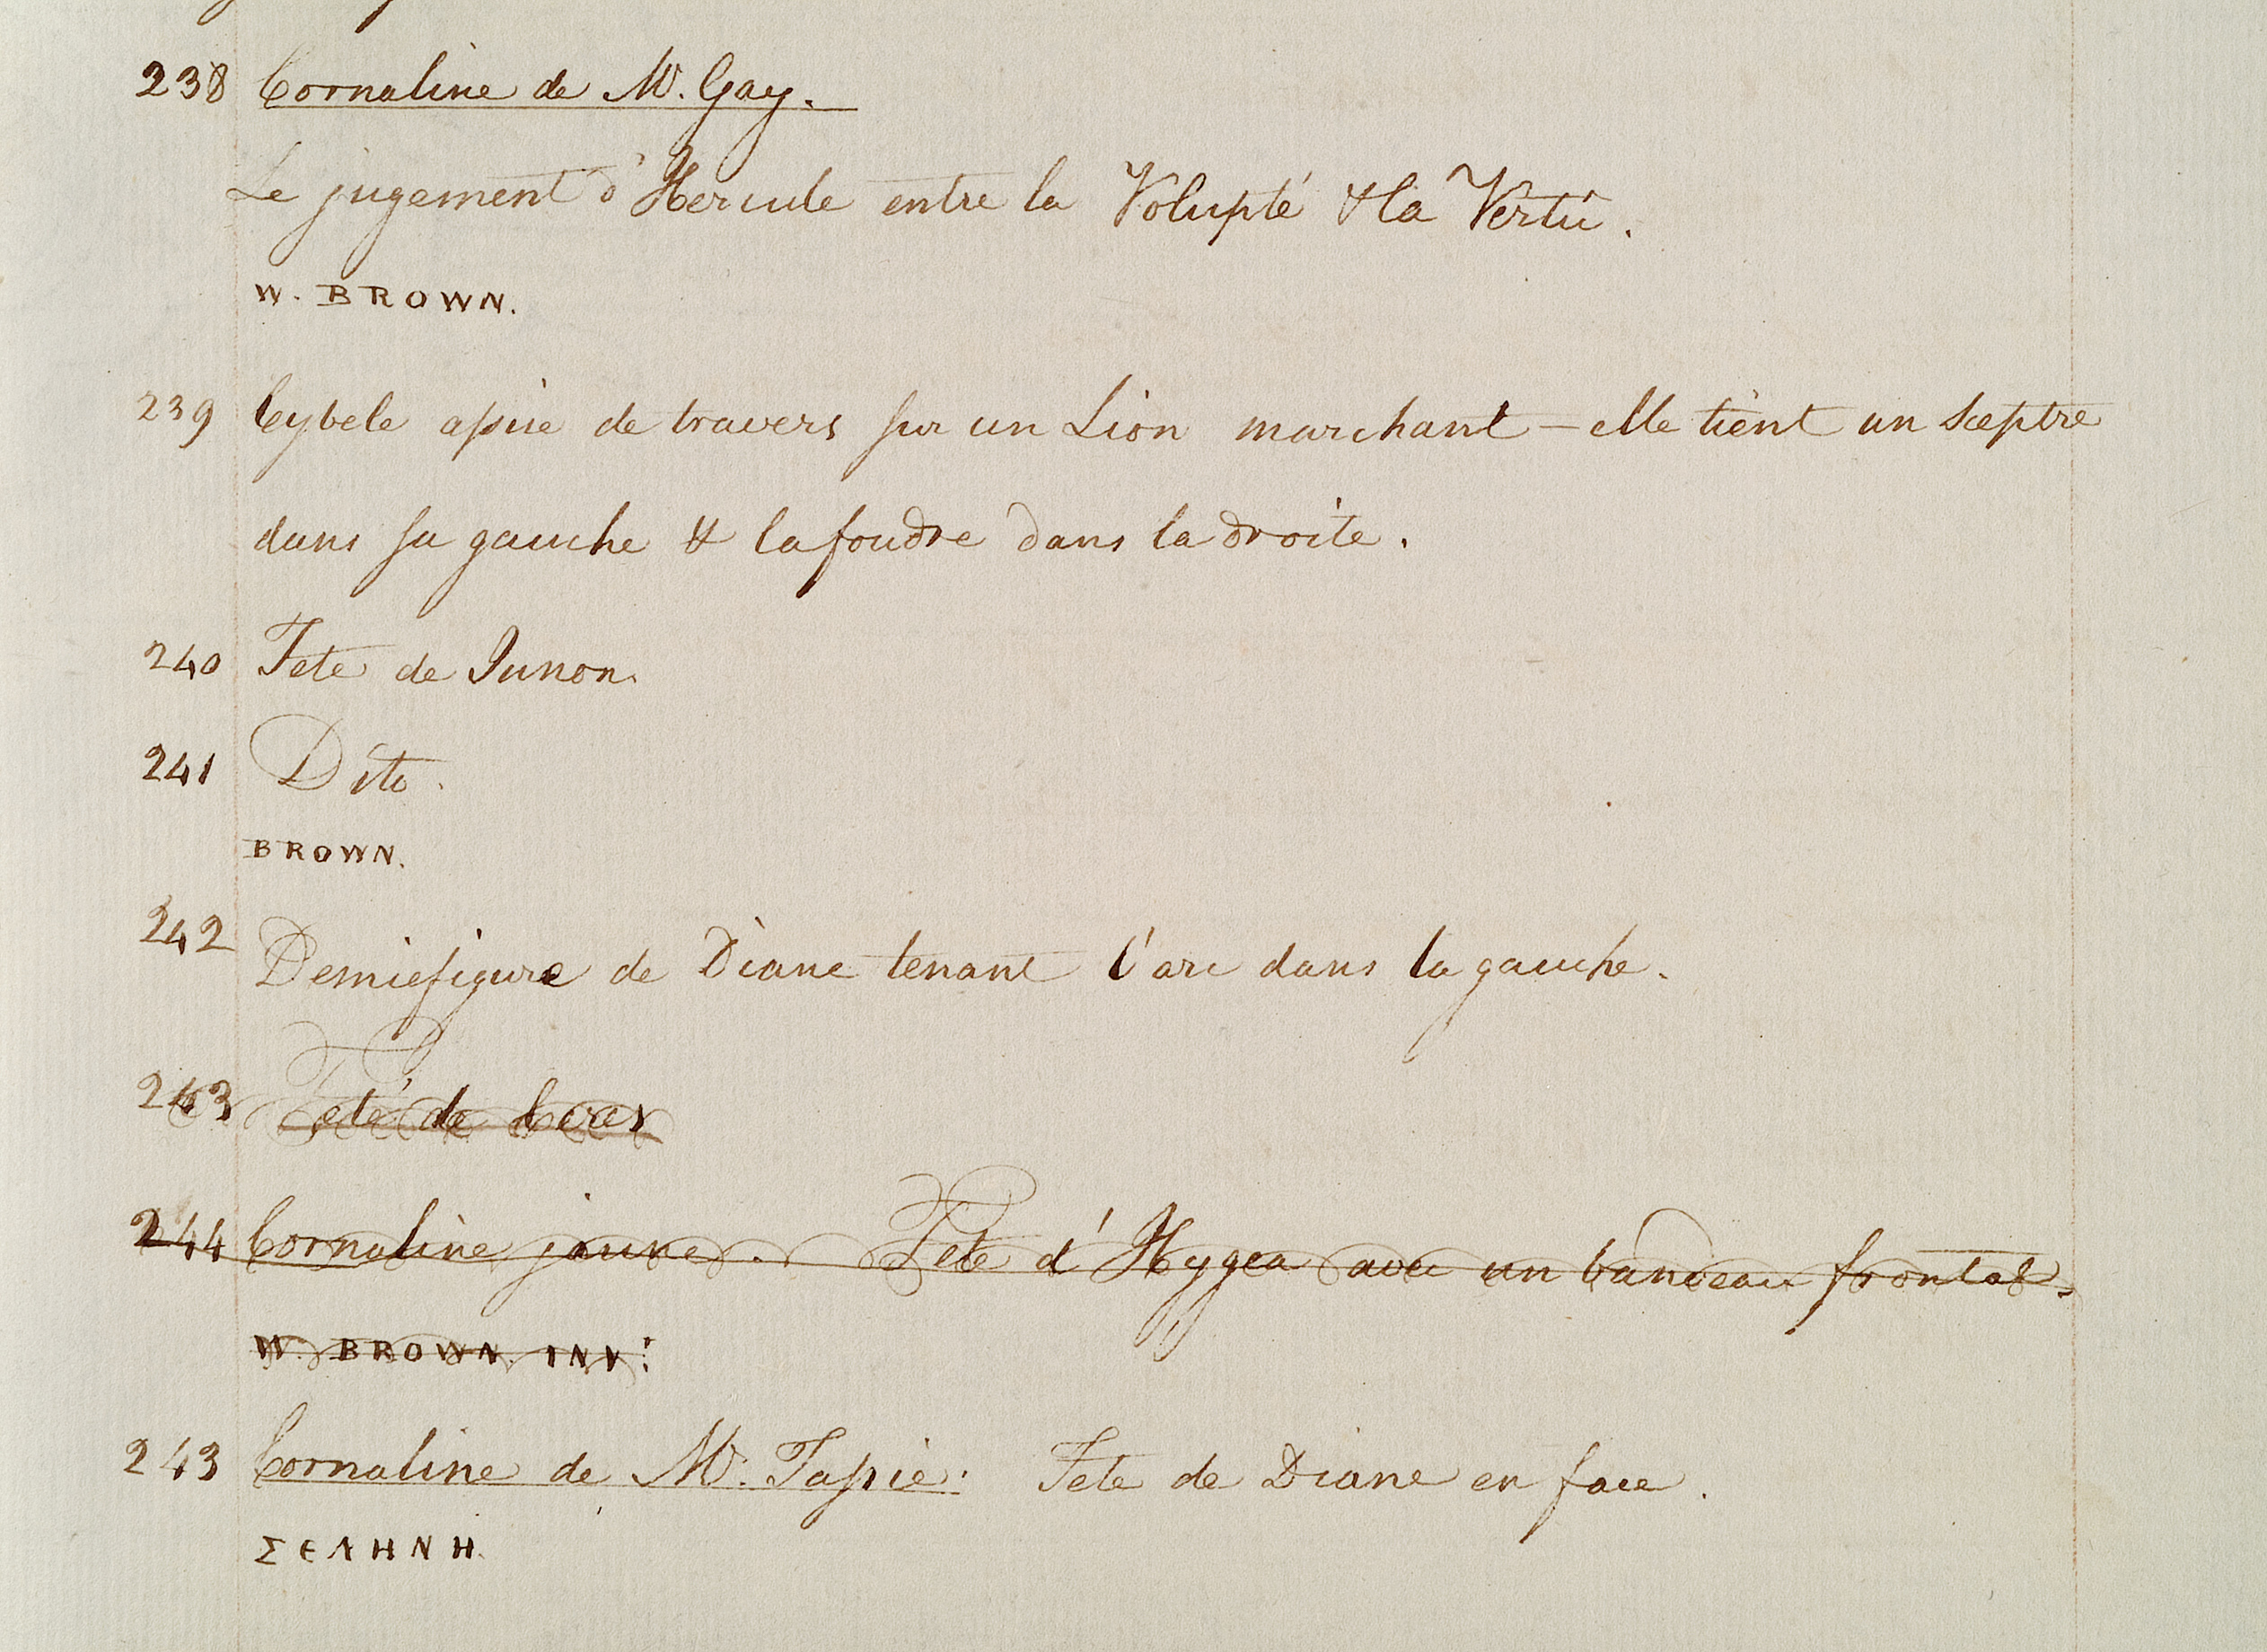 238 Cornaline de Mr. Gay.
Le jugement d'Hercule entre la Volupté & la Vertu.
W. BROWN.
239 Cybele assise de travers sur un Lion marchant – elle tient un Sceptre
dans sa gauche & la foudre dans la droite.
240 Tete de Junon.
241 Dito.
BROWN.
242 Demiefigure de Diane tenant l'arc dans la gauche.
243 Tete de Ceres
244 Cornaline jaune. Tete d'Hygea avec un bandeau frontal.
W. BROWN. INV:
243 Cornaline de Mr. Tassie: Tete de Diane en face.
ΣЄΛΗΝΗ.